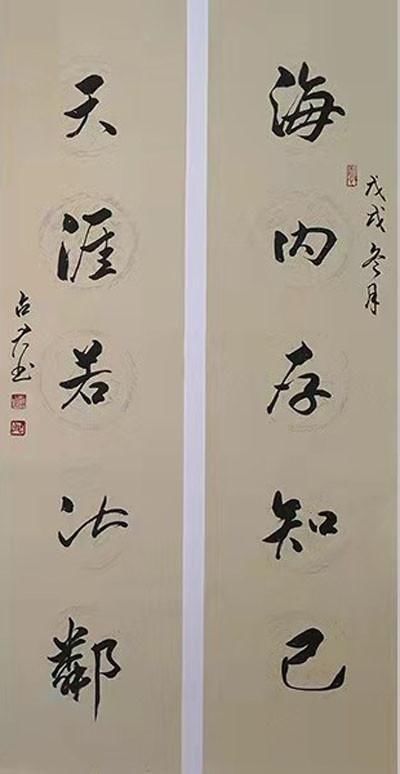 戊戌冬月
海内存知己
天涯若比鄰